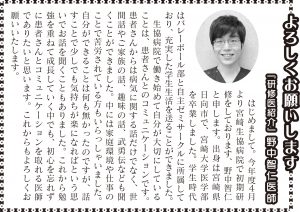 よろしくお願いします
【研修医紹介】野中智仁医師
はじめまして。今年度4月
より宮崎生協病院で初期研
修をしております、野中智仁
と申します。出身は宮崎県
日向市で、宮崎大学医学部
を卒業しました。学生時代
はバレーボール部と自主ゼミサークルに所属して
おり、充実した学生生活を送ることができました。
生協病院で働き始めて自分が大切にしている
ことは、患者さんとのコミュニケーションです。
患者さんからは病気に関する話だけでなく、世
間話やご家族の話、趣味の話、武勇伝なども聞
くことができました。中には家庭環境や仕事の
方で苦労されている方もいらっしゃいました。
自分ができることは何も無いかもですが、話
すことで少しでも気持ちが楽になればという思
いでお話を聞くこともありました。これから勉
強を重ねて成長していく中でも、初心を忘れず
に患者さんとコミュニケーションを取れる医師
でありたいと思います。これからもよろしくお
願いいたします。